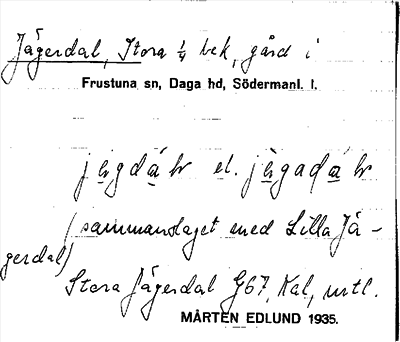 Jägerdal, Stora 1/4 bek, gård i
Frustuna sn, Daga hd, Södermanl. l.
el.
(sammanslaget med Lilla Jä-
gerdal)
Stora Jägerdal G67, Kal, mtl.
MÅRTEN EDLUND 1935.